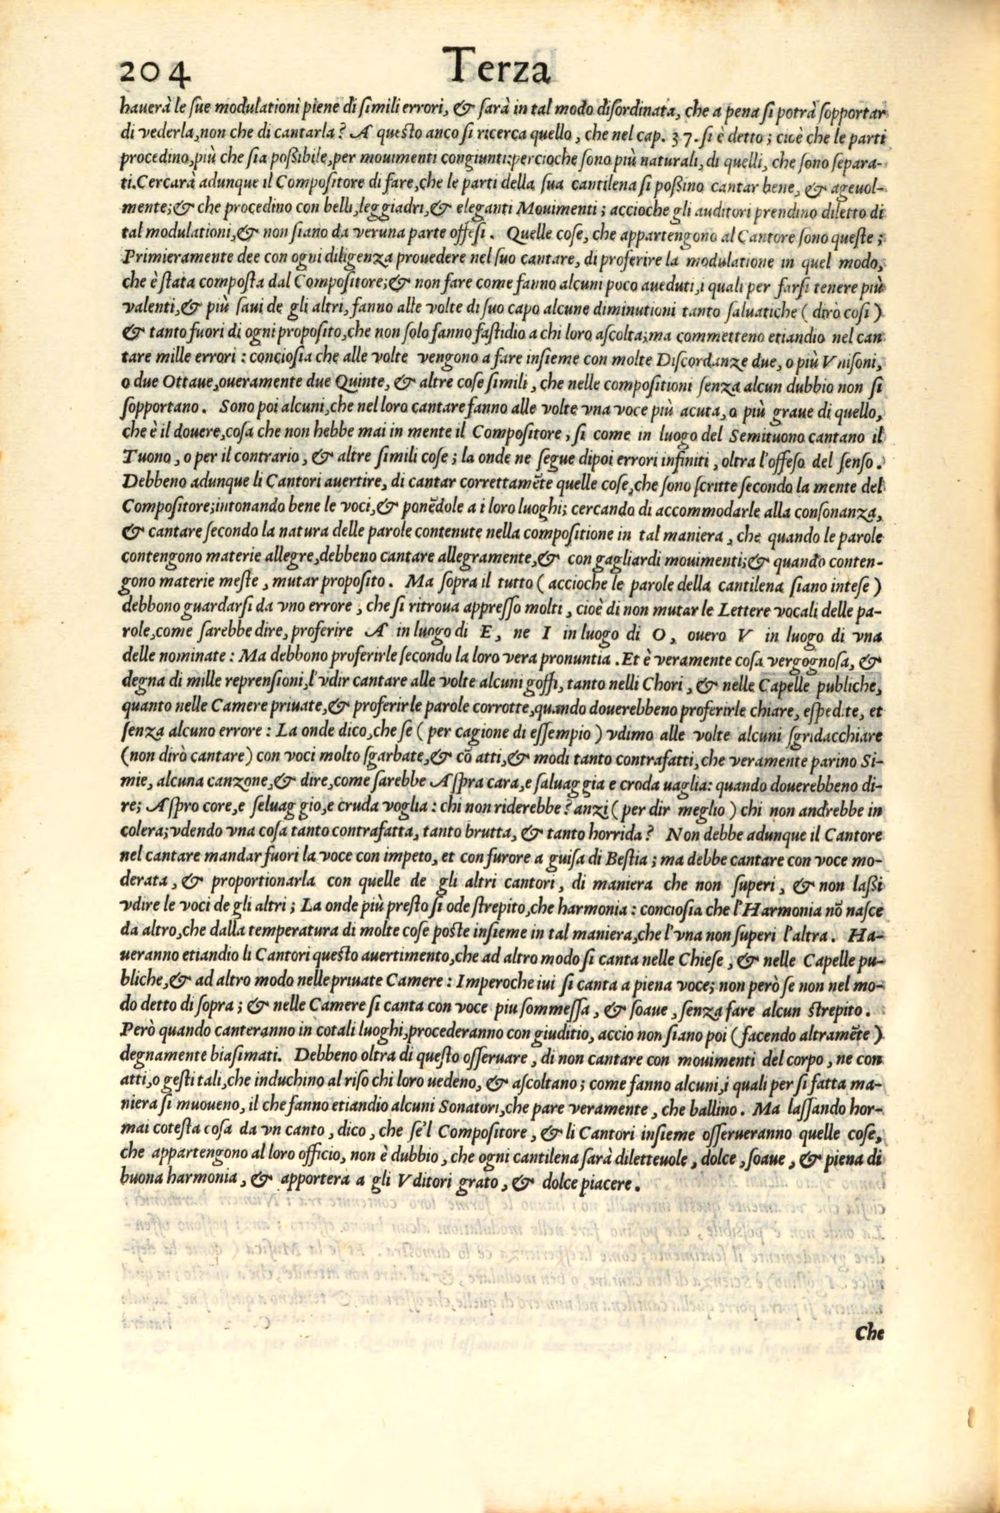 204 Terza
hauerà le ſue modulationi piene di ſimili errori, & ſarà in tal modo diſordinata, che a pena ſi potrà ſopportar
di vederla, non che di cantarla? A queſto anco ſi ricerca quello, che nel cap. 37. ſi è detto; cioè che le parti
procedino, più che ſia poßibile, per mouimenti congiunti: percioche ſono più naturali, di quelli, che ſono ſepara-
ti. Cercarà adunque il Compoſitore di fare, che le parti della ſua cantilena ſi poßino cantar bene, & ageuol-
mente; & che procedino con belli, leggiadri, & eleganti Mouimenti; accioche gli auditori prendino diletto di
tal modulationi, & non ſiano da veruna parte offeſi. Quelle coſe, che appartengono al Cantore ſono queſte;
Primieramente dee con ogni diligenza prouedere nel ſuo cantare, di proferire la modulatione in quel modo,
che è ſtata compoſta dal Compoſitore; & non fare come fanno alcuni poco aueduti, i quali per farſi tenere più
valenti, & più ſaui de gli altri, fanno alle volte di ſuo capo alcune diminutioni tanto ſaluatiche ( dirò coſi )
& tanto fuori di ogni propoſito, che non ſolo fanno faſtidio a chi loro aſcolta; ma commetteno etiandio nel can
tare mille errori: concioſia che alle volte vengono a fare inſieme con molte Diſcordanze due, o più Vniſoni,
o due Ottaue, oueramente due Quinte, & altre coſe ſimili, che nelle compoſitioni ſenza alcun dubbio non ſi
ſopportano. Sono poi alcuni, che nel loro cantare fanno alle volte vna voce più acuta, o più graue di quello,
che è il douere, coſa che non hebbe mai in mente il Compoſitore, ſi come in luogo del Semituono cantano il
Tuono, o per il contrario, & altre ſimili coſe; la onde ne ſegue dipoi errori infiniti, oltra l'offeſo del ſenſo.
Debbeno adunque li Cantori auertire, di cantar correttamẽte quelle coſe, che ſono ſcritte ſecondo la mente del
Compoſitore; intonando bene le voci, & ponẽdole a i loro luoghi; cercando di accommodarle alla conſonanza,
& cantare ſecondo la natura delle parole contenute nella compoſitione in tal maniera, che quando le parole
contengono materie allegre, debbeno cantare allegramente, & con gagliardi mouimenti; & quando conten-
gono materie meſte, mutar propoſito. Ma ſopra il tutto ( accioche le parole della cantilena ſiano inteſe )
debbono guardarſi da vno errore, che ſi ritroua appreſſo molti, cioè di non mutar le Lettere vocali delle pa-
role, come ſarebbe dire, proferire A in luogo di E, ne I in luogo di O, ouero V in luogo di vna
delle nominate: Ma debbono proferirle ſecondo la loro vera pronuntia. Et è veramente coſa vergognoſa, &
degna di mille reprenſioni, l'vdir cantare alle volte alcuni goffi, tanto nelli Chori, & nelle Capelle publiche,
quanto nelle Camere priuate, & proferir le parole corrotte, quando douerebbeno proferirle chiare, eſpedite, et
ſenza alcuno errore: La onde dico, che ſe ( per cagione di eſſempio ) vdimo alle volte alcuni ſgridacchiare
(non dirò cantare) con voci molto ſgarbate, & cõ atti, & modi tanto contrafatti, che veramente parino Si-
mie, alcuna canzone, & dire, come ſarebbe Aſpra cara, e ſaluaggia e croda uaglia: quando douerebbeno di-
re; Aſpro core, e ſeluaggio, e cruda voglia: chi non riderebbe? anzi ( per dir meglio ) chi non andrebbe in
colera; vdendo vna coſa tanto contrafatta, tanto brutta, & tanto horrida? Non debbe adunque il Cantore
nel cantare mandar fuori la voce con impeto, et con furore a guiſa di Beſtia; ma debbe cantare con voce mo-
derata, & proportionarla con quelle de gli altri cantori, di maniera che non ſuperi, & non laßi
vdire le voci de gli altri; La onde più preſto ſi ode ſtrepito, che harmonia: concioſia che l'Harmonia nõ naſce
da altro, che dalla temperatura di molte coſe poſte inſieme in tal maniera, che l'vna non ſuperi l'altra. Ha-
ueranno etiandio li Cantori queſto auertimento, che ad altro modo ſi canta nelle Chieſe, & nelle Capelle pu-
bliche, & ad altro modo nelle priuate Camere: Imperoche iui ſi canta a piena voce; non però ſe non nel mo-
do detto di ſopra; & nelle Camere ſi canta con voce piu ſommeſſa, & ſoaue, ſenza fare alcun ſtrepito.
Però quando canteranno in cotali luoghi, procederanno con giuditio, accio non ſiano poi ( facendo altramẽte )
degnamente biaſimati. Debbeno oltra di queſto oſſeruare, di non cantare con mouimenti del corpo, ne con
atti, o geſti tali, che induchino al riſo chi loro uedeno, & aſcoltano; come fanno alcuni, i quali per ſi fatta ma-
niera ſi muoueno, il che fanno etiandio alcuni Sonatori, che pare veramente, che ballino. Ma laſſando hor-
mai coteſta coſa da vn canto, dico, che ſe'l Compoſitore, & li Cantori inſieme oſſerueranno quelle coſe,
che appartengono al loro officio, non è dubbio, che ogni cantilena ſarà diletteuole, dolce, ſoaue, & piena di
buona harmonia, & apportera a gli Vditori grato, & dolce piacere.
Che